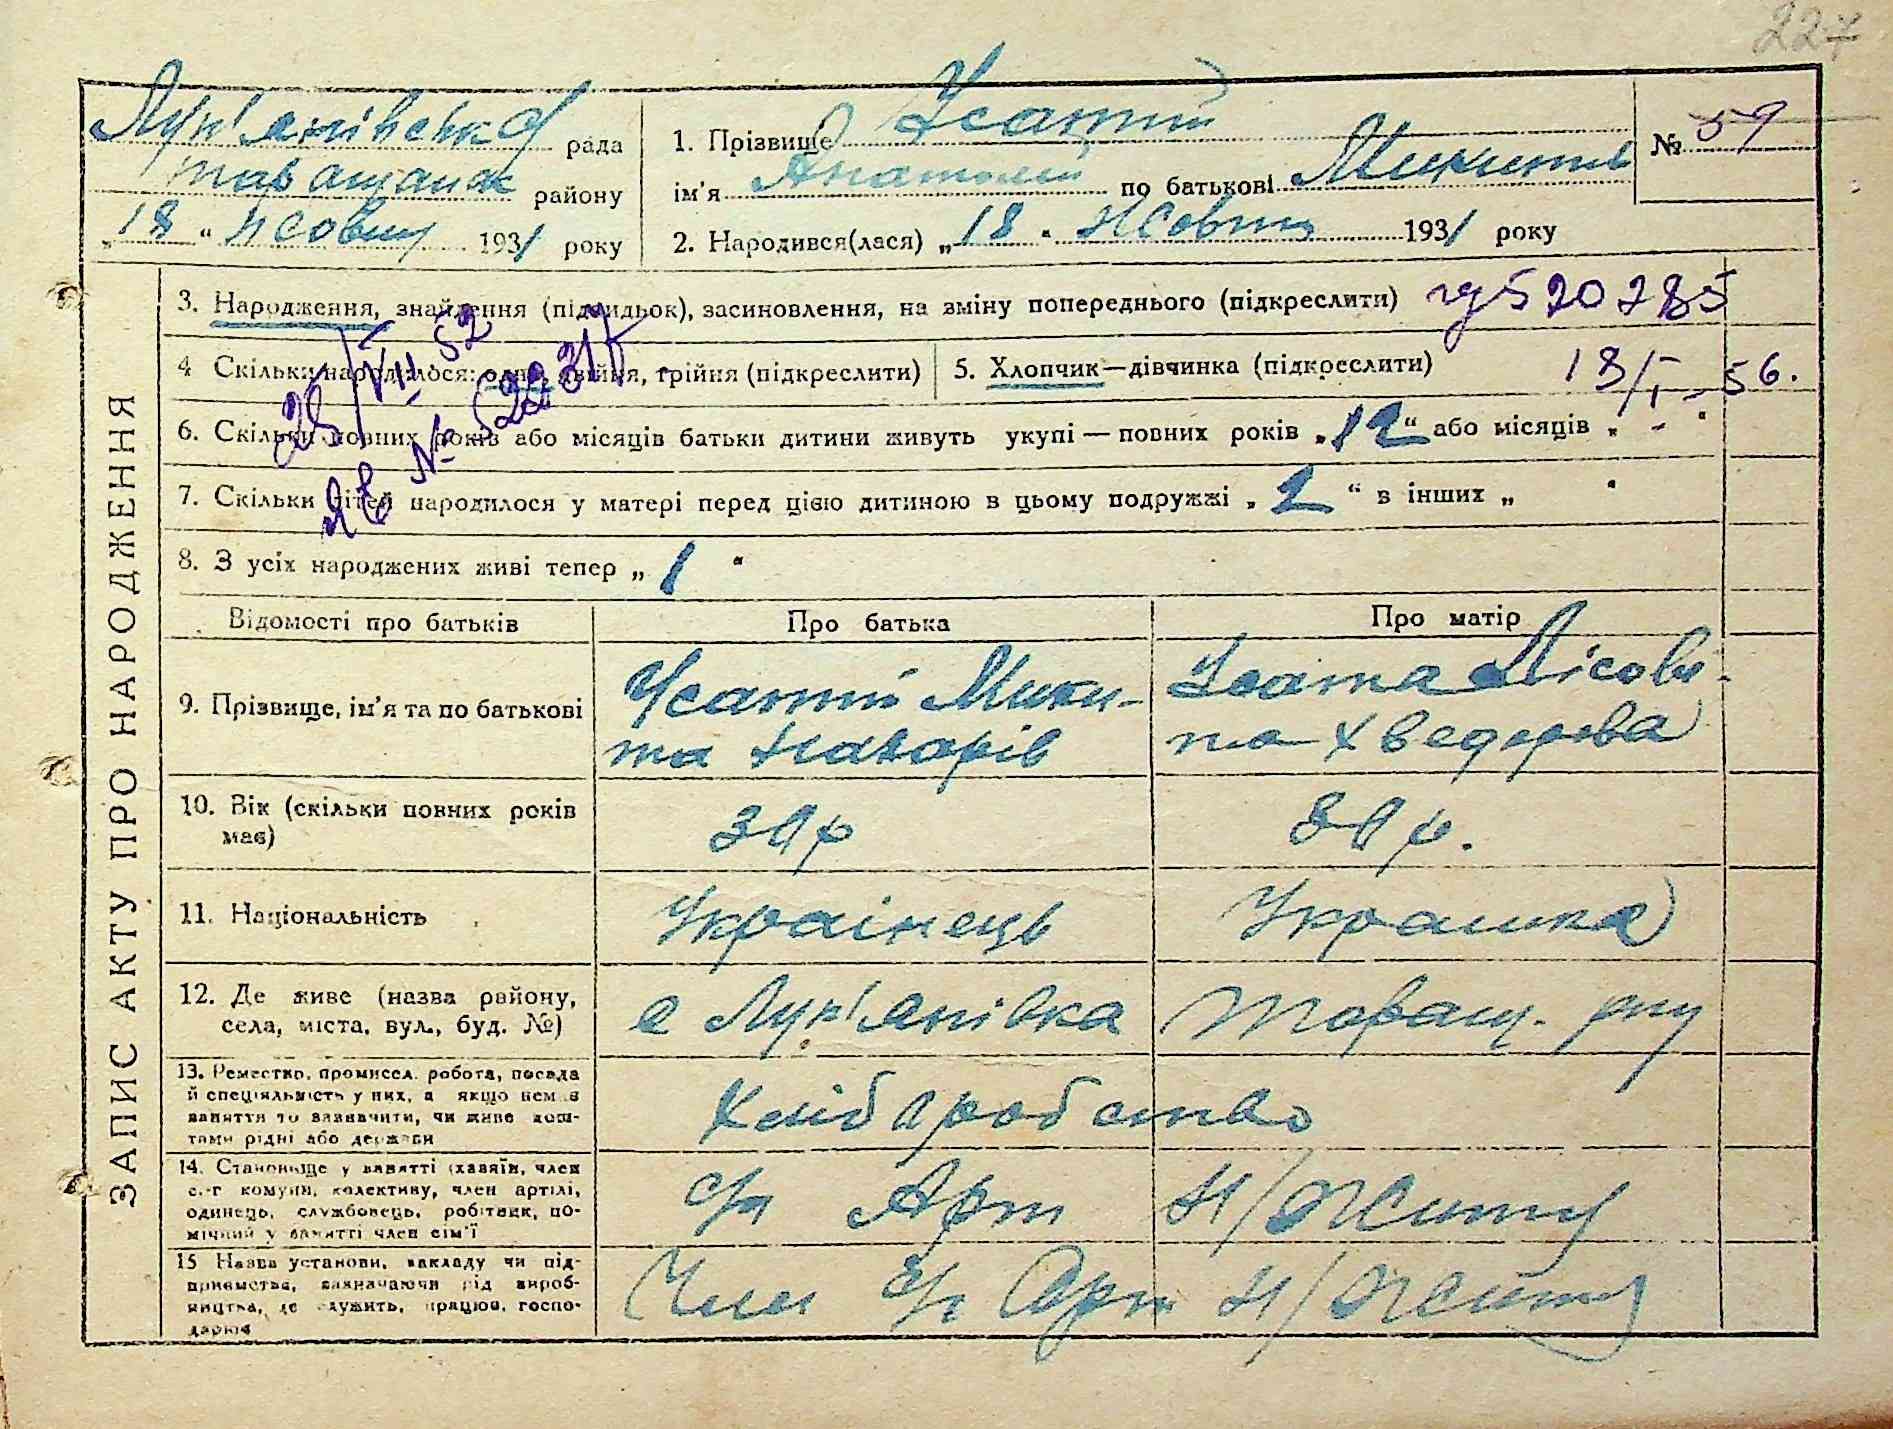 227
Лук'янівська рада
Таращанск району
„18“ Жовтня 1931 року
1. Прізвище Усатий
№ 59
ім'я Анатолій по батькові Микитів
2. Народився(лася) „18“ Жовтня 1931 року
ЗАПИС АКТУ ПРО НАРОДЖЕННЯ
3. Народження, знайдення (підкидьок), засиновлення, на зміну попереднього (підкреслити) 520285
4 Скільки народилося: одне, двійня, трійня (підкреслити)
5. Хлопчик—дівчинка (підкреслити) 13/I-56.
25/VII 52
№
6. Скільки повних років або місяців батьки дитини живуть укупі — повних років „12“ або місяців „-“
7. Скільки дітей народилося у матері перед цією дитиною в цьому подружжі „2“ в інших „ “
8. З усіх народжених живі тепер „1“
Відомості про батьків Про батька Про матір
9. Прізвище, ім'я та по батькові
Усатий Мики-
та Назарів
Усата Лісове-
та Хведорова
10. Вік (скільки повних років
має)
30 р
30 р.
11. Національність Українець Українка
12. Де живе (назва району,
села, міста, вул., буд. №)
с Лук'янівка Таращ. р-ну
13. Ремество, промисел, робота, посада
й спеціяльність у них, а якщо немає
заняття то зазначити, чи живе кош-
тами рідні або держави
Хліборобство
14. Становище у занятті (хазяїн, член
с.-г комуни, колективу, член артілі,
одинець, службовець, робітник, по-
мічний у занятті член сім'ї
с/г Арт Н/Житт
15 Назва установи, закладу чи під-
приємства, зазначаючи рід вироб-
ництва, де служить, працює, госпо-
дарює
Член с/г Арт Н/Житт